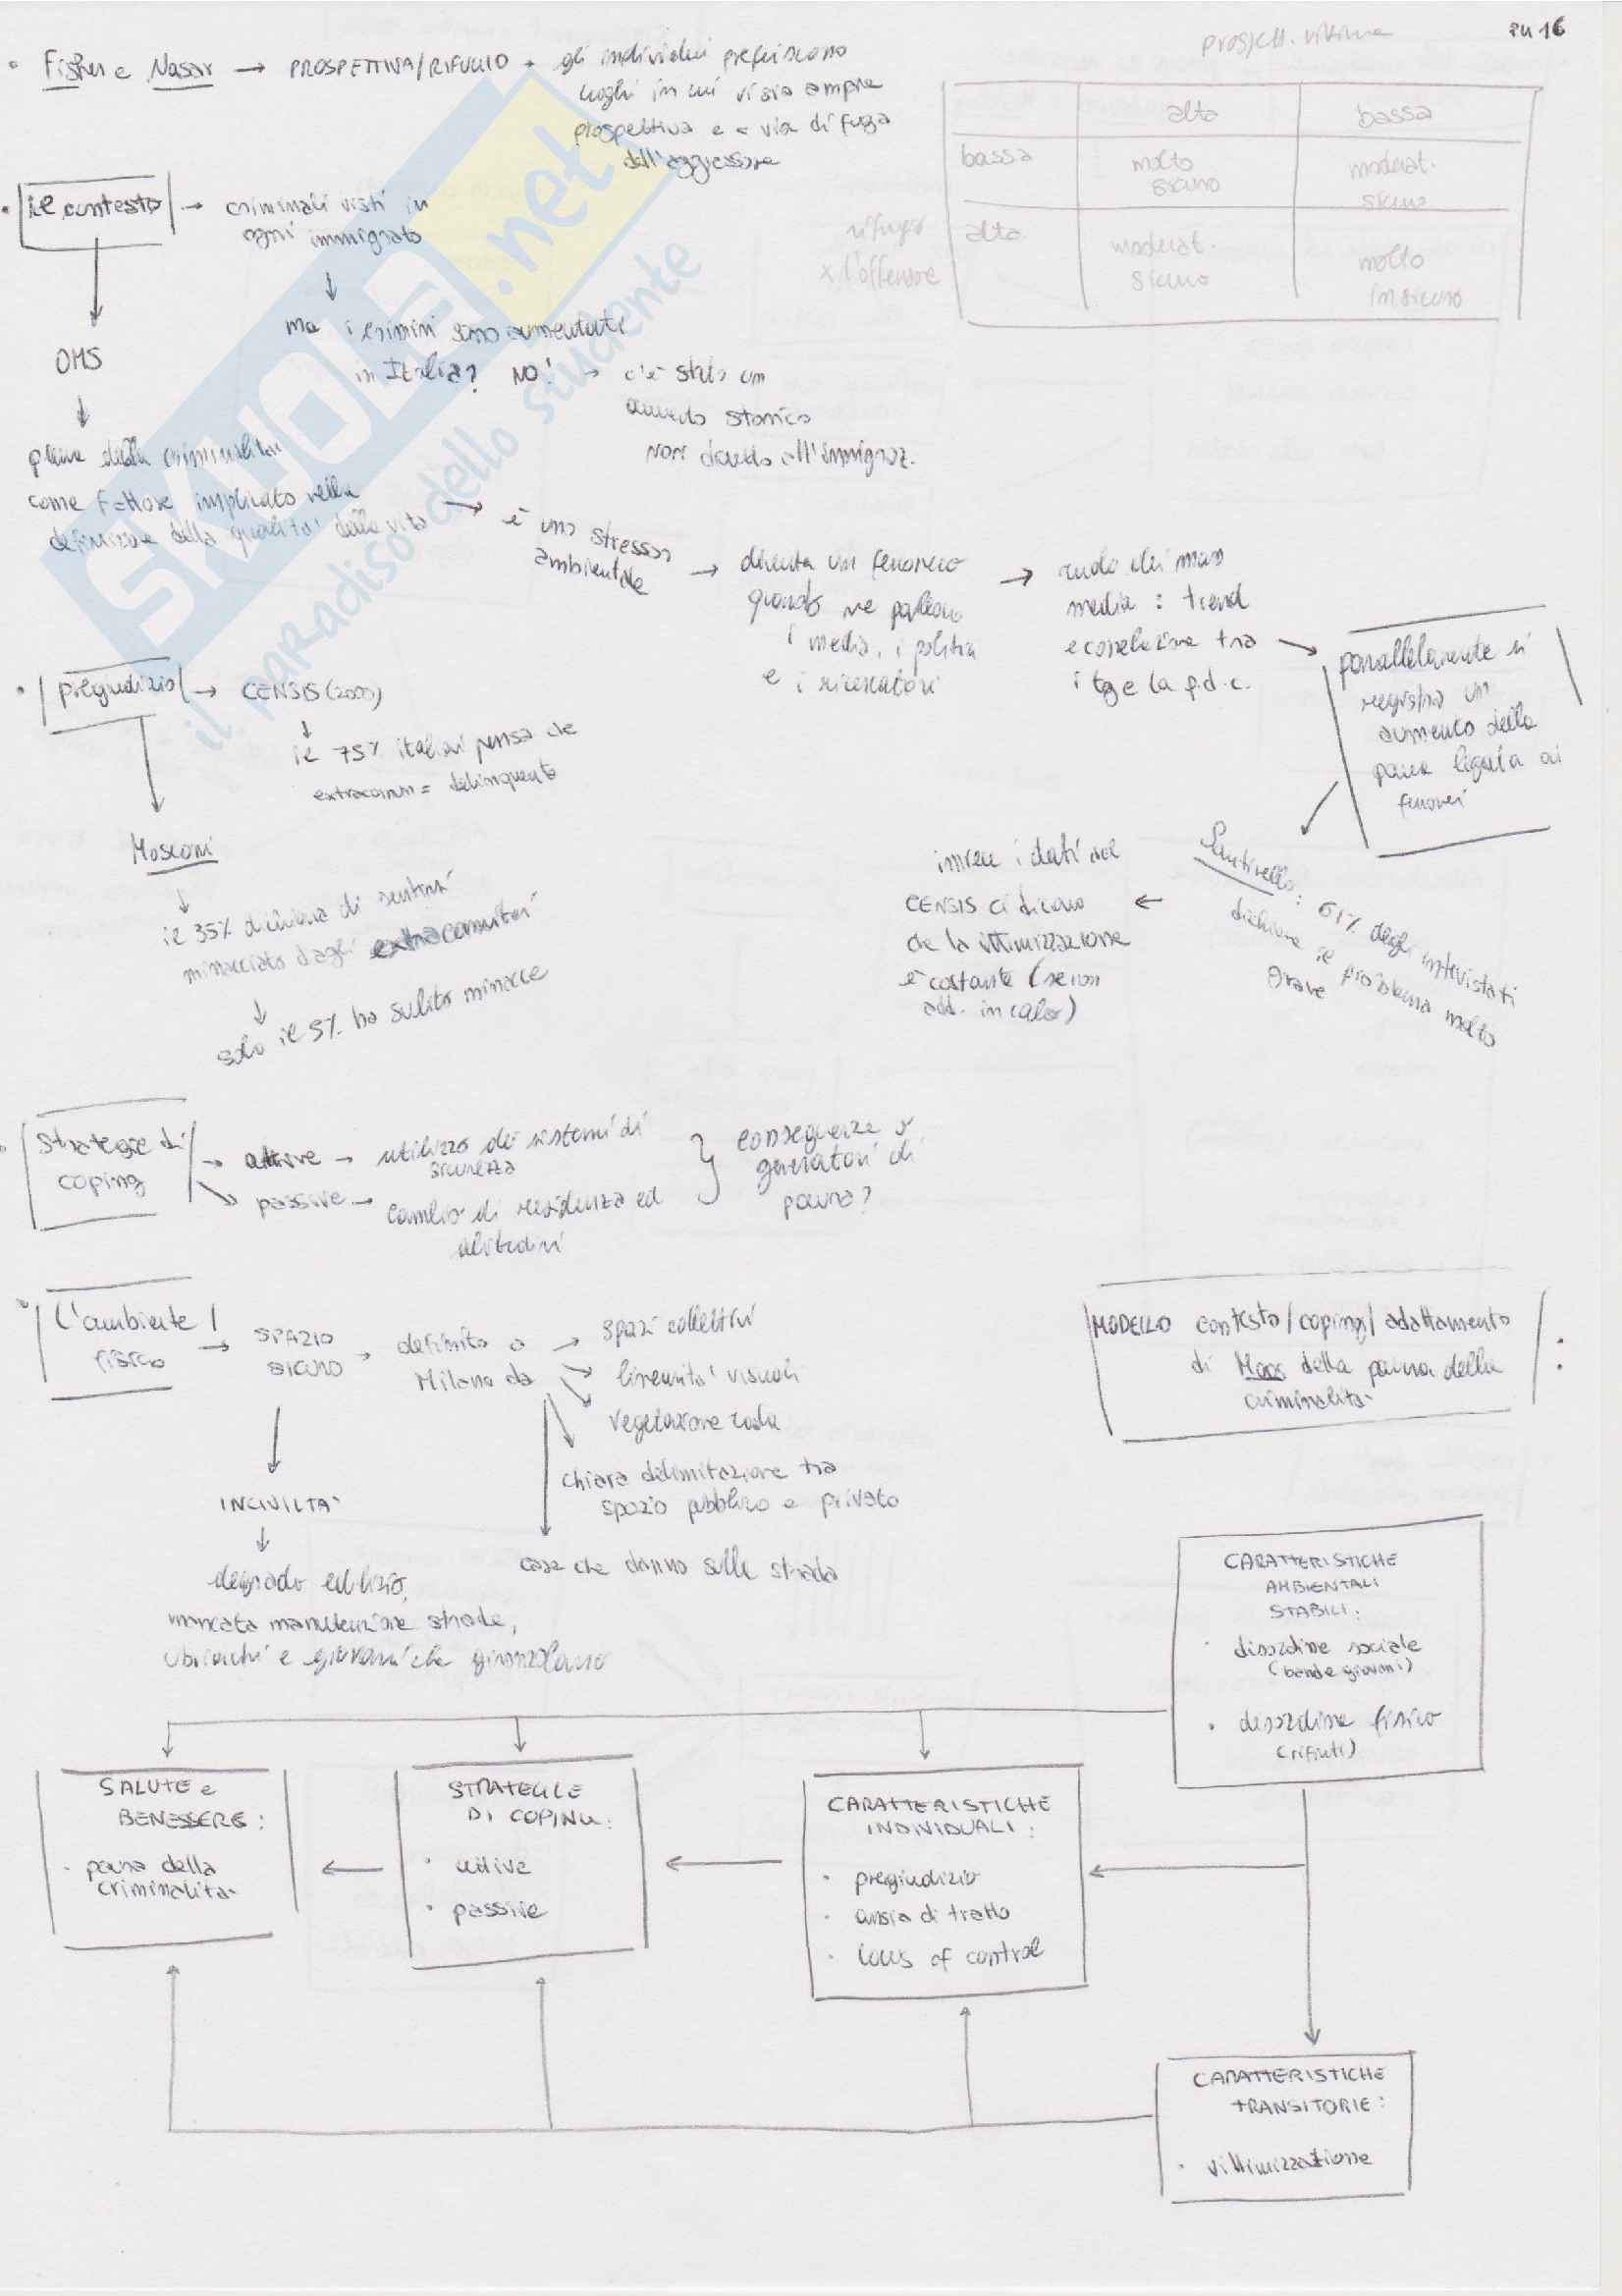 PU 16
• Fisher e Nasar → PROSPETTIVA/RIFUGIO → gli individui preferiscono
luoghi in cui vi sia ampia
prospettiva e - via di fuga
dell'aggressore
prospett. vittima
alta bassa
bassa molto sicuro moderat. sicuro
rifugio x l'offensore
alta moderat. sicuro molto insicuro
• il contesto → criminali visti in
ogni immigrato
↓
ma i crimini sono aumentati
in Italia? NO! → c'è stato un
aumento storico
non dovuto all'immigraz.
OMS
↓
paura della criminalità
come fattore implicato nella
definizione della qualità della vita
→ è uno stressor
ambientale
→ diventa un fenomeno
quando ne parlano
i media, i politici
e i ricercatori
→ ruolo dei mass
media: trend
e correlazione tra
i tg e la p.d.c.
→ parallelamente si
registra un
aumento della
paura legata ai
fenomeni
Santinello: 61% degli intervistati
dichiara il problema molto
grave
← invece i dati del
CENSIS ci dicono
che la vittimizzazione
è costante (se non
add. in calo)
• pregiudizio → CENSIS (2003)
↓
il 75% italiani pensa che
extracomm = delinquente
Mosconi
↓
il 35% dichiara di sentirsi
minacciato dagli extracomunitari
↓
solo il 5% ha subito minacce
• strategie di
coping
→ attive → utilizzo dei sistemi di
sicurezza
→ passive → cambio di residenza ed
abitudini
} conseguenze o
generatori di
paura?
• l'ambiente
fisico
→ SPAZIO
SICURO
→ definito a
Milano da
→ spazi collettivi
linearità visuali
vegetazione rada
chiara delimitazione tra
spazio pubblico e privato
case che danno sulla strada
INCIVILTA'
↓
degrado edilizio,
mancata manutenzione strade,
ubriachi e giovani che gironzolano
MODELLO contesto/coping/adattamento
di Moos della paura della
criminalità :
CARATTERISTICHE
AMBIENTALI
STABILI:
• disordine sociale
(bande giovani)
• disordine fisico
(rifiuti)
SALUTE e
BENESSERE:
• paura della
criminalità
STRATEGIE
DI COPING:
• attive
• passive
CARATTERISTICHE
INDIVIDUALI:
• pregiudizio
• ansia di tratto
• locus of control
CARATTERISTICHE
TRANSITORIE:
• vittimizzazione
SKUOLA.net
il paradiso dello studente